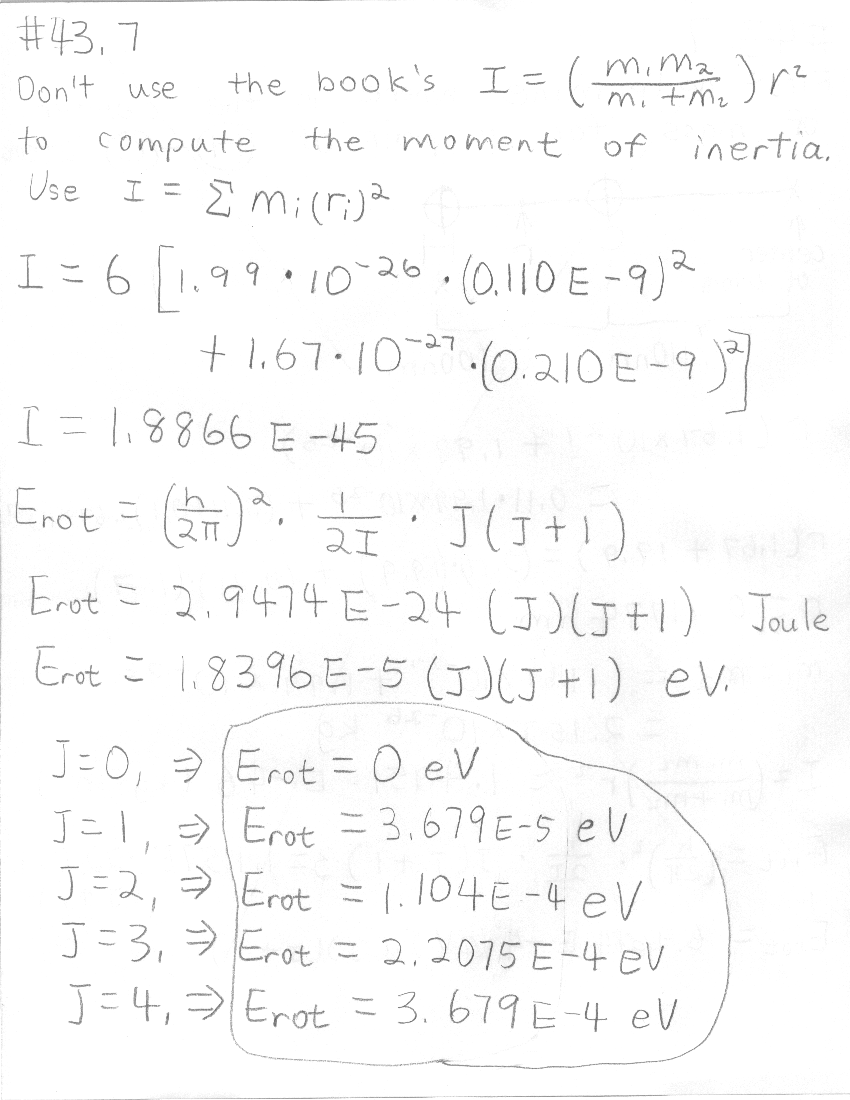 #43.7
Don't use the book's I = (m₁m₂/(m₁+m₂)) r²
to compute the moment of inertia.
Use I = Σ mᵢ(rᵢ)²
I = 6 [1.99 · 10⁻²⁶ · (0.110 E-9)²
+ 1.67 · 10⁻²⁷ · (0.210 E-9)²]
I = 1.8866 E-45
Erot = (h/2π)² · 1/2I · J(J+1)
Erot = 2.9474 E-24 (J)(J+1) Joule
Erot = 1.8396 E-5 (J)(J+1) eV.
J=0, ⇒ Erot = 0 eV
J=1, ⇒ Erot = 3.679E-5 eV
J=2, ⇒ Erot = 1.104E-4 eV
J=3, ⇒ Erot = 2.2075E-4 eV
J=4, ⇒ Erot = 3.679E-4 eV